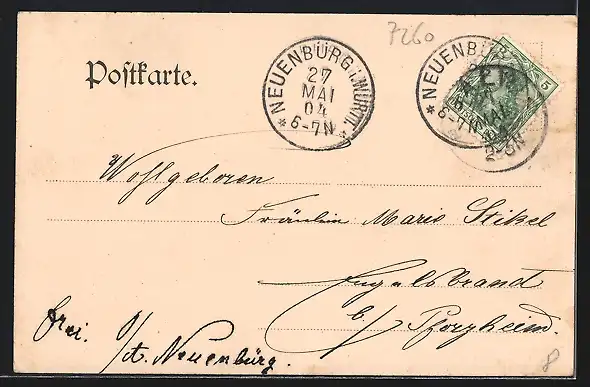 7260
Postkarte.
NEUENBÜRG i. WÜRTT.
27
MAI
04
6-7N
NEUENBÜR
MAI
6-7N
2-3N
5
Wohlgeboren
Fräulein Marie Stikel
Engelsbrand
b/ Pforzheim.
frei.
O/A. Neuenbürg.
8